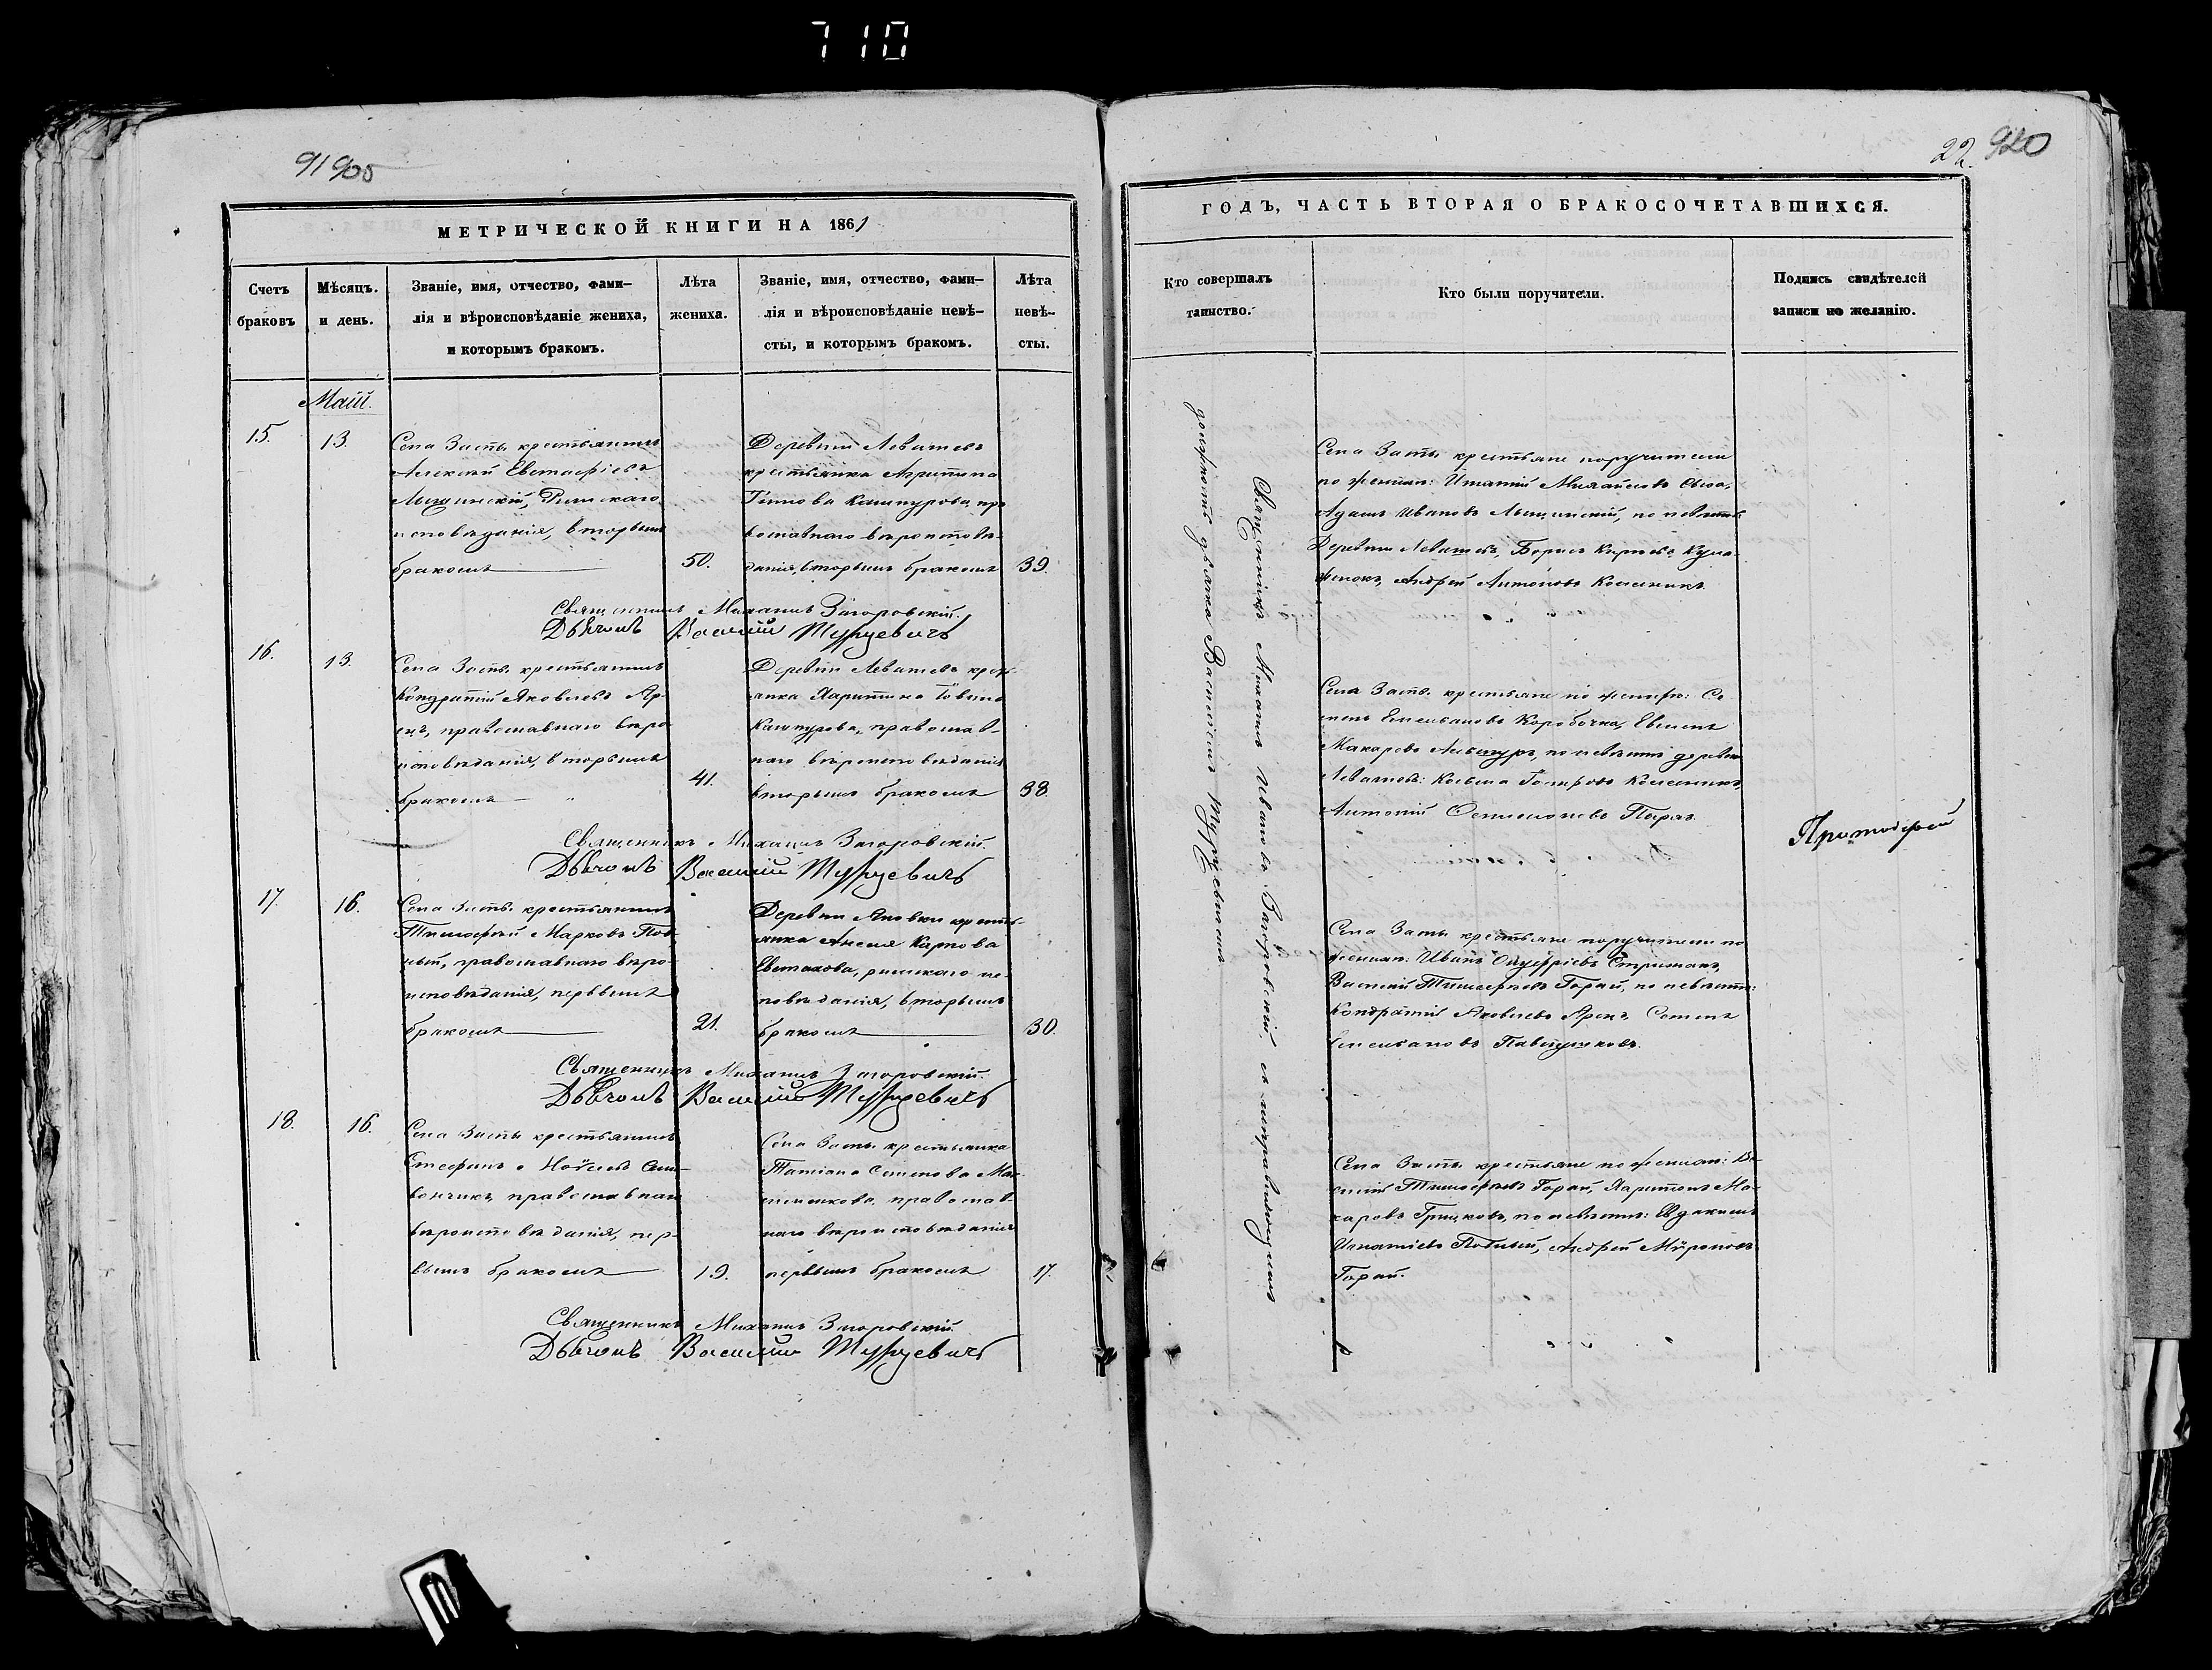 710
91 905
МЕТРИЧЕСКОЙ КНИГИ НА 1861
Счетъ
браковъ
Мѣсяцъ.
и день.
Званіе, имя, отчество, фами–
лія и вѣроисповѣданіе жениха,
и которымъ бракомъ.
Лѣта
жениха.
Званіе, имя, отчество, фами–
лія и вѣроисповѣданіе невѣ–
сты, и которымъ бракомъ.
Лѣта
невѣ–
сты.
Маій.
15.
13.
Села Заты крестьянинъ
Алексій Евстафіевъ
Лыщинскій, Римскаго
исповѣданія, вторымъ
бракомъ
50.
Деревни Левашевъ
крестьянка Агрипина
Титова Кашпурова, пра
вославнаго вѣроисповѣ-
данія, вторымъ бракомъ
39.
Священникъ Михаилъ Загоровскій.
Дьячокъ Василій
16.
13.
Села Заты крестьянинъ
Кондратій Яковлевъ Яр-
екъ, православнаго вѣро
исповѣданія, вторымъ
бракомъ
41.
Деревни Левашевъ крес-
янка Харитина
Кашпурова, православ-
наго вѣроисповѣданія
вторымъ бракомъ
38.
Священникъ Михаилъ Загоровскій.
Дьячокъ Василій
17.
16.
Села Заты крестьянинъ
Тимофей Марковъ Пов-
ный, православнаго вѣро-
исповѣданія, первымъ
бракомъ
21.
Деревни Яновки кресть-
янка Анелія Карпова
римскаго ис-
повѣданія, вторымъ
бракомъ
30.
Священникъ Михаилъ Загоровскій.
Дьячокъ Василій
18.
16.
Села Заты крестьянинъ
Стефанъ
православнаго
вѣроисповѣданія, пер-
вымъ бракомъ
19.
Села Заты крестьянка
Татіана Семенова
православ-
наго вѣроисповѣданія
первымъ бракомъ
17.
Священникъ Михаилъ Загоровскій.
Дьячокъ Василій
22. 920
ГОДЪ, ЧАСТЬ ВТОРАЯ О БРАКОСОЧЕТАВШИХСЯ.
Кто совершалъ
таинство.
Кто были поручители.
Подпись свидѣтелей
записи по желанію.
Священникъ Михаилъ Ивановъ Загоровскій съ исправляющимъ
должность дьячка Василіемъ
Села Заты крестьяне поручители
по женихѣ: Игнатій Михайловъ
Адамъ Ивановъ Лыщинскій, по невѣстѣ
Деревни Левашевъ, Борисъ Карповъ
Андрей Антоновъ Колесникъ.
Села Заты крестьяне по женихѣ: Се-
менъ Емельяновъ Коробочка,
Макаровъ по невѣстѣ деревни
Левашевъ: Косьма Колесникъ
Антоній
Села Заты крестьяне поручители по
женихѣ: Иванъ Онуфріевъ Стрижакъ,
Василій Тимофеевъ Горай, по невѣстѣ:
Кондратій Яковлевъ Ярекъ, Семенъ
Емельяновъ
Села Заты крестьяне по женихѣ: Ва-
силій Тимофеевъ Горай, Харитонъ Ма-
каровъ Грицковъ, по невѣстѣ: Евдакимъ
Игнатіевъ Повный, Андрей Мироновъ
Горай.